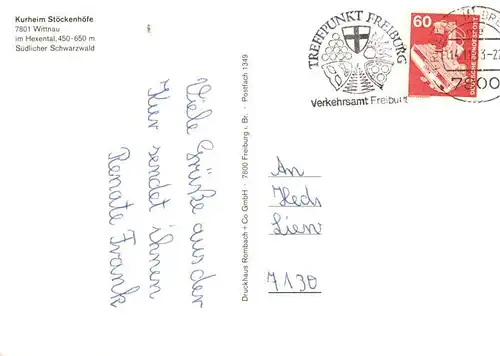 Kurheim Stöckenhöfe
7801 Wittnau
im Hexental, 450-650 m
Südlicher Schwarzwald
Viele Grüße aus der
Kur sendet ihnen
Renate Frank
Druckhaus Rombach + Co GmbH · 7800 Freiburg i. Br. · Postfach 1349
TREFFPUNKT FREIBURG
Verkehrsamt Freiburg
60
DEUTSCHE BUNDESPOST
7800
An
Heds
Lien
7130